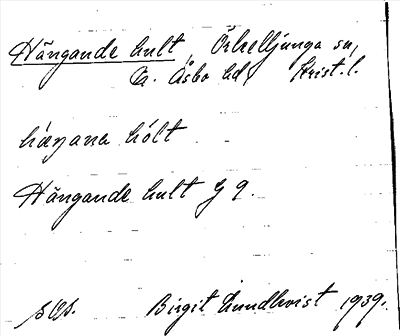 Hängande hult, Örkelljunga sn,
N. Åsbo hd, Krist. l.
hæŋana hólt
Hängande hult
Birgit Lundkvist 1939.